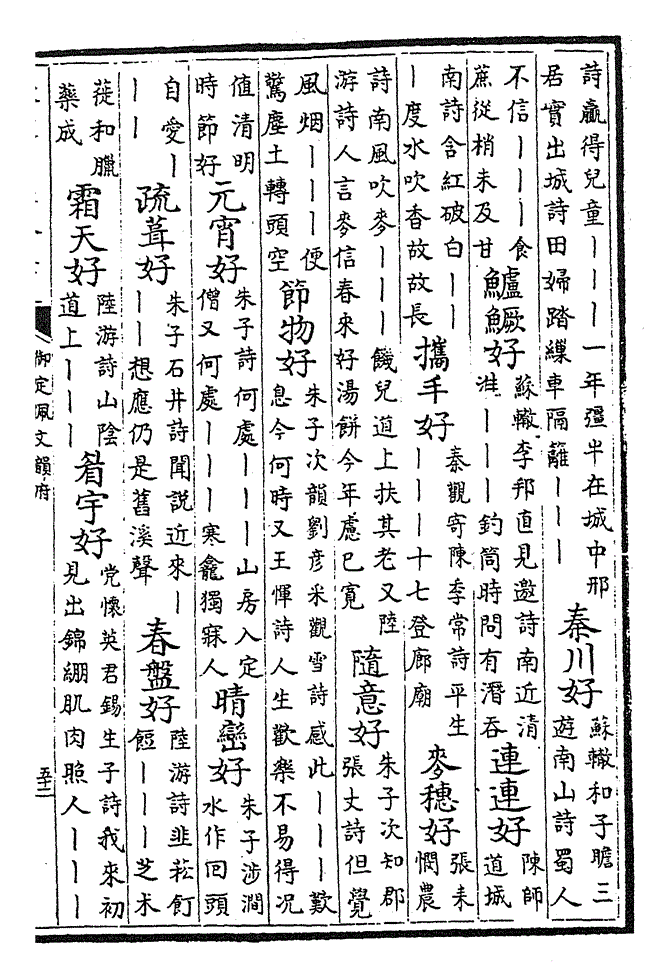 詩贏得兒童丨丨丨一年彊半在城中邢
居實出城詩田婦踏繰車隔籬丨丨丨
秦川好
蘇轍和子瞻三
遊南山詩蜀人
不信丨丨丨食
蔗從梢末及甘
鱸鱖好
蘇轍李邦直見邀詩南近清
淮丨丨丨釣筒時問有潛吞
連連好
陳師
道城
南詩含紅破白丨丨
丨度水吹香故故長
攜手好
秦觀寄陳季常詩平生
丨丨丨十七登廊廟
麥穗好
張耒
憫農
詩南風吹麥丨丨丨饑兒道上扶其老又陸
游詩人言麥信春來好湯餅今年慮已寬
隨意好
朱子次知郡
張丈詩但覺
風烟丨丨丨便
驚塵土轉頭空
節物好
朱子次韻劉彥采觀雪詩感此丨丨丨歎
息今何時又王惲詩人生歡樂不易得况
值清明
時節好
元宵好
朱子詩何處丨丨丨山房入定
僧又何處丨丨丨寒龕獨寐人
晴巒好
朱子涉澗
水作回頭
自愛丨
丨丨
疏葺好
朱子石井詩聞說近來丨
丨丨想應仍是舊溪聲
春盤好
陸游詩韭菘飣
餖丨丨丨芝朮
蓰和臘
藥成
霜天好
陸游詩山陰
道上丨丨丨
眉宇好
党懷英君錫生子詩我來初
見出錦綳肌肉照人丨丨丨
御定佩文韻府